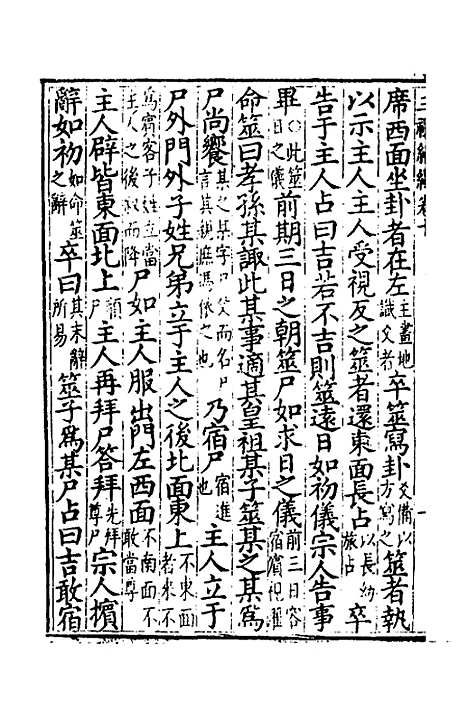 三禮編繹卷十
席西面坐卦者在左主畫地識爻者卒筮寫卦爻備以方寫之筮者執
以示主人主人受視反之筮者還東面長占以長幼旅占卒
告于主人占曰吉若不吉則筮遠日如初儀宗人告事
畢○此筮日之儀前期三日之朝筮尸如求日之儀前三日容宿賓視濯
命筮曰孝孫某諏此某事適其皇祖某子筮某之某為
尸尚饗某之某字尸父而名尸言其親庶馮依之也乃宿尸宿進也主人立于
尸外門外子姓兄弟立于主人之後北面東上不東面者來不
為賓客子姓立當主人之後敘而降尸如主人服出門左西面不南面不敢當尊
主人辟皆東面北上順尸主人再拜尸答拜先拜尊尸宗人擯
辭如初如命筮之辭卒曰其末辭所易筮子為某尸占曰吉敢宿